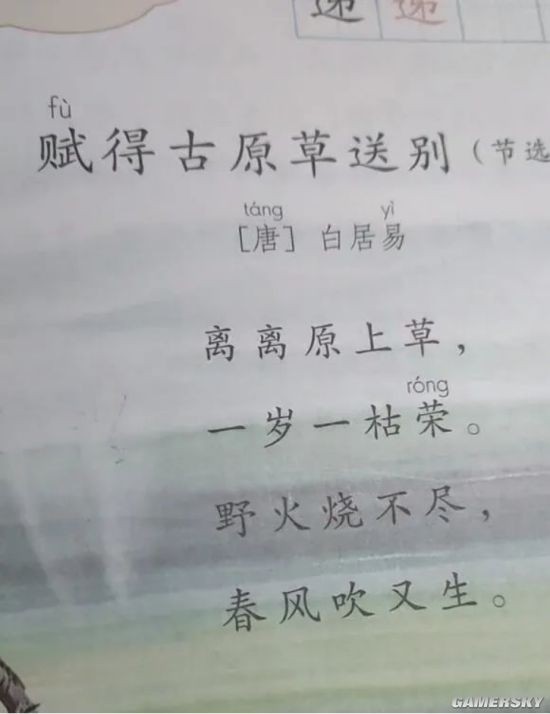 递 递
fù
赋得古原草送别（节选
táng yì
［唐］白居易
离离原上草，
róng
一岁一枯荣。
野火烧不尽，
春风吹又生。
GAMERSKY